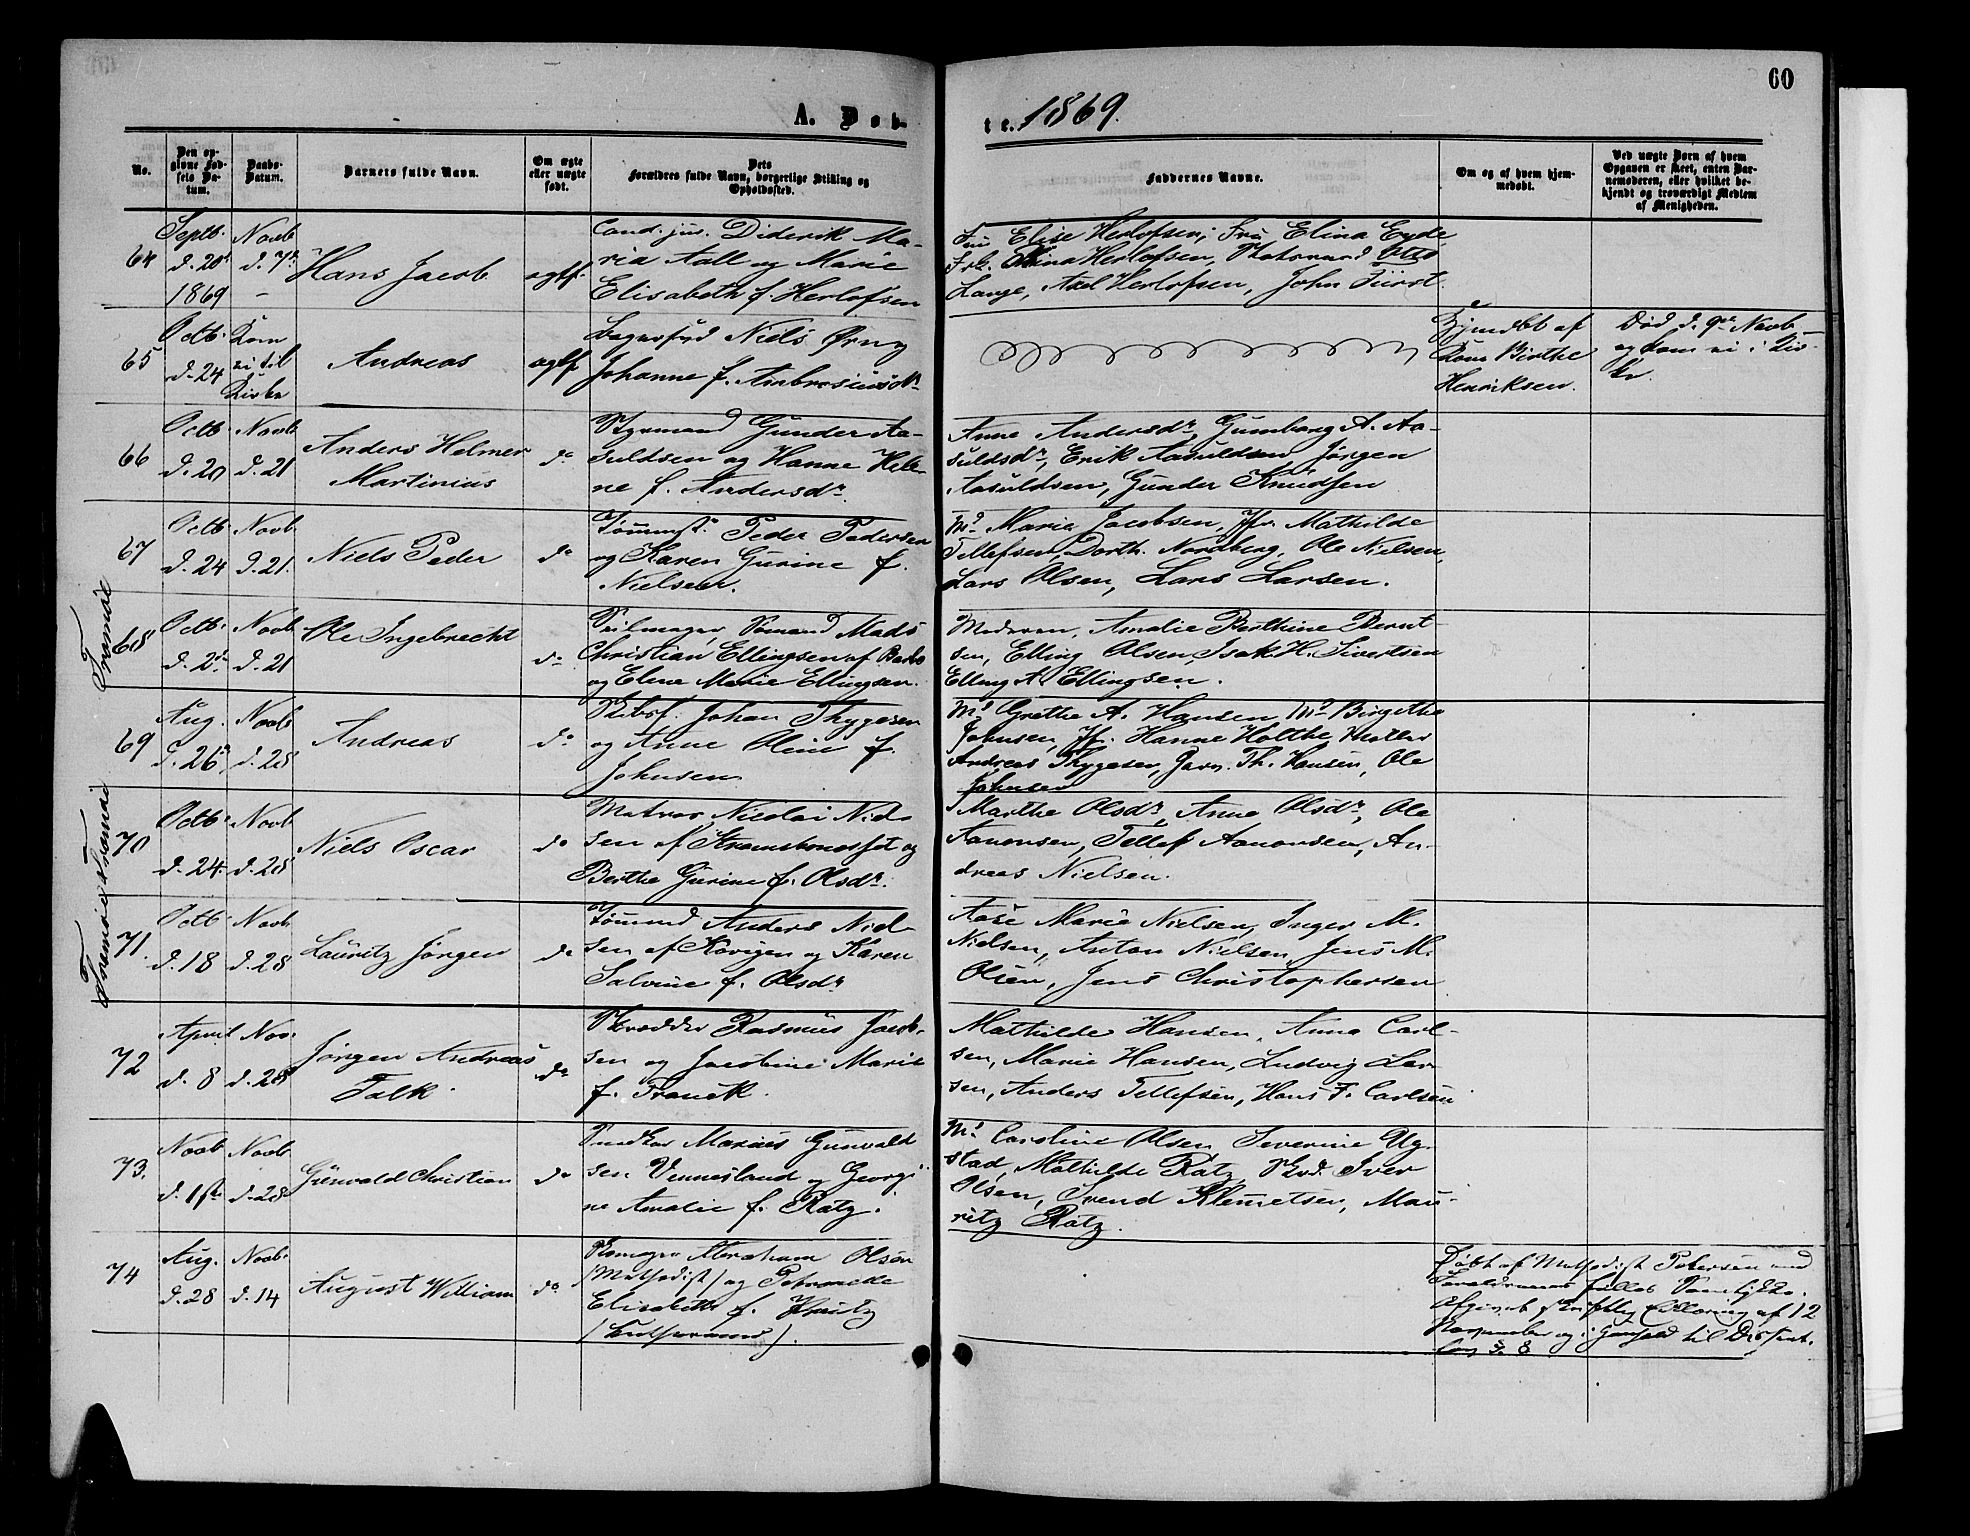 60
A. Døb-
te. 1869.
No.
Den op-
givne Fød-
sels Da-
tum.
Daabs-
Datum.
Barnets fulde Navn.
Om ægte
eller uægte
født.
Dets
Forældres fulde Navn, borgerlige Stilling og
Opholdssted.
Faddernes Navne.
Om og af hvem hjem-
medøbt.
Ved uægte Børn af hvem
Opgaven er skeet, enten Bar-
nemoderen, eller hvilket be-
kjendt og troværdigt Medlem
af Menigheden.
64
Septb.
d. 20de
1869
Novb
d. 7de
Hans Jacob
ægtf.
Cand. jur. Diderik Ma-
ria Aall og Marie
Elisabeth f. Herlofsen
Fru Elise Herlofsen; Fru Elina Eyde
Frk. Herlofsen, Otto
Lange, Axel Herlofsen, John Fürst.
65
Octb.
d. 24
Kom
ei til
Kirke
Andreas
ægtf
Niels Ørny
Johanne f. Ambrosiusdr.
Hjemdbt af
Birthe
Henriksen.
Død d. 9de Novb
og kom ei i Kir-
ke.
66
Octb
d. 20
Novb
d. 21
Anders Helmer
Martinius
do
Styrmand Gunder Aa-
suldsen og Hanne Hele-
ne f. Andersdr.
Anne Andersdr, Gunborg A. Aa-
suldsdr, Erik Aasuldsen Jørgen
Aasuldsen, Gunder Knudsen
67
Octb
d. 24
Novb
d. 21.
Niels Peder
do
Tømmm. Peder Pedersen
og Karen Gurine f.
Nielsen.
Md. Maria Jacobsen, Jfr. Mathilde
Tellefsen, Dorth. Nordberg, Ole Nielsen,
Lars Olsen, Lars Larsen.
Tromøe
68
Octb.
d. 2de
Novb
d. 21
Ole Ingebrecht
do
Seilmager, Sømand Mads
Christian Ellingsen af
og Elene Marie Ellingsen.
Moderen, Amalie Berthine Bernt-
sen, Elling Olsen, Isak H. Sivertsen
Elling A. Ellingsen.
69
Aug.
d. 26de
Novb
d. 28
Andreas
do
Skibsf. Johan Thygesen
og Anne Oline f.
Johnsen
Md. Grethe A. Hansen Md Birgithe
Johnsen, Jfr. Hanne Holthe
Andreas Thygesen, Th. Hansen, Ole
Johnsen
Tromøe
70
Octb.
d. 24.
Novb
d. 28
Niels Oscar
do
Matros Nicolai Niel-
sen af og
Berthe Gurine f. Olsdr.
Marthe Olsdr, Anne Olsdr, Ole
Aanonsen, Tellef Aanonsen, An-
dreas Nielsen.
Tromøe
71.
Octb.
d. 18
Novb
d. 28
Lauritz Jørgen
do
Tømmmd Anders Niel-
sen af Kovigen og Karen
Salvine f. Olsdr
Aase Marie Nielsen, Inger M.
Nielsen, Anton Nielsen, Jens M.
Olsen, Jens Christophersen
72
April
d. 8
Nov.
d. 28
Jørgen Andreas
Falk.
do
Skrædder Rasmus Jacob-
sen og Jacobine Marie
f. Franck.
Mathilde Hansen, Anna Carl-
sen, Marie Hansen, Ludvig Lar-
sen, Anders Tellefsen, Hans F. Carlsen
73.
Novb
d. 1ste
Novb
d. 28
Gunvald Christian
do
Snedker Marius Gunvald
sen Vennesland og Georgi-
ne Amalie f. Ratz.
Md. Caroline Olsen Severine Ug-
stad, Mathilde Ratz, Iver
Olsen, Svend Klemetsen, Mau-
ritz Ratz.
74
Aug.
d. 28
Novb.
d. 14
August William
do
Skomager Abraham Olsen
(Methodist) og Petronelle
Elisabeth f.
(Lutheraner).
Døbt af Methodist Petersen med
Forældrenes fælles Samtykke.
Afgivet skriftlig Erklæring af 12
November og i Henhold til Dissent.
lov § 8